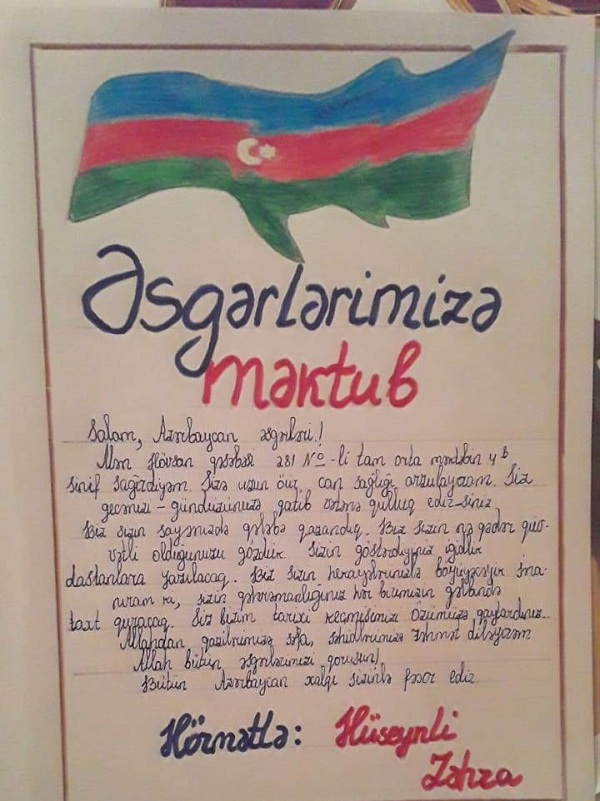 Əsgərlərimizə
məktub
Salam, Azərbaycan əsgərləri!
Mən Hövsan qəsəbəsi 281 №-li tam orta məktəbin 4ᵇ
sinif şagirdiyəm. Sizə uzun ömür, can sağlığı arzulayıram. Siz
gecənizi-gündüzünüzə qatıb vətənə qulluq edir-siniz.
Biz sizin sayənizdə qələbə qazandıq. Biz sizin nə qədər qüv-
vətli olduğunuzu gördük. Sizin göstərdiyiniz igidlik
dastanlara yazılacaq. Biz sizin hekayələrinizlə böyüyəcəyik. İna-
nıram ki, sizin qəhrəmanlığınız hər birimizin qəlbində
taxt quracaq. Siz bizim tarixi keçmişimizi özümüzə qaytardınız...
Allahdan qazilərimizə şəfa, şəhidlərimizə rəhmət diləyirəm
Allah bütün əsgərlərimizi qorusun!
Bütün Azərbaycan xalqı sizinlə fəxr edir.
Hörmətlə: Hüseynli
Zəhra